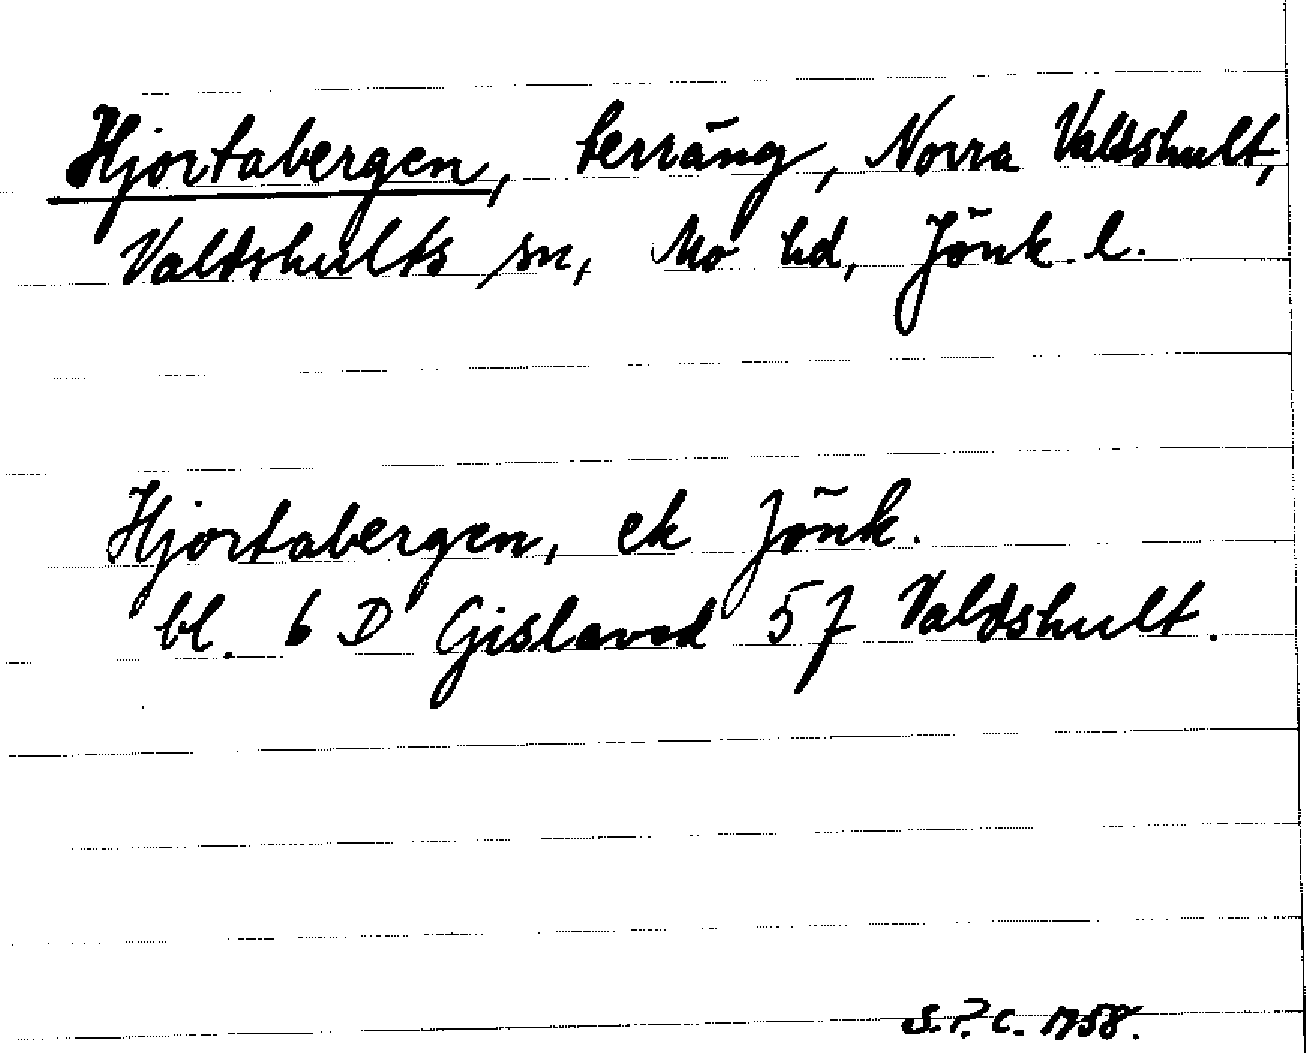 Hjortabergen, terräng, Norra Valdshult,
Valdshults sn, Mo hd, Jönk. l.
Hjortabergen, ek Jönk.
bl. 6 D Gislaved 5 f Valdshult.
S.P.C. 1958.